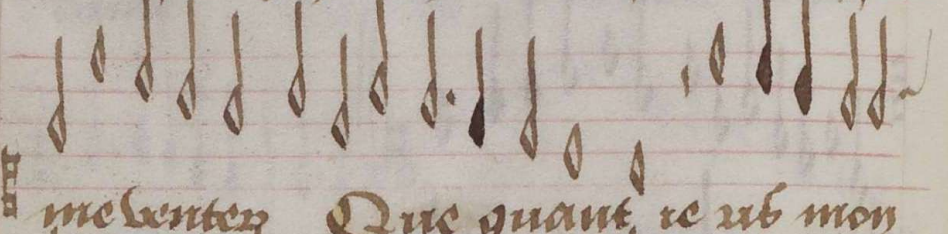 me venter Que quant ie us mon